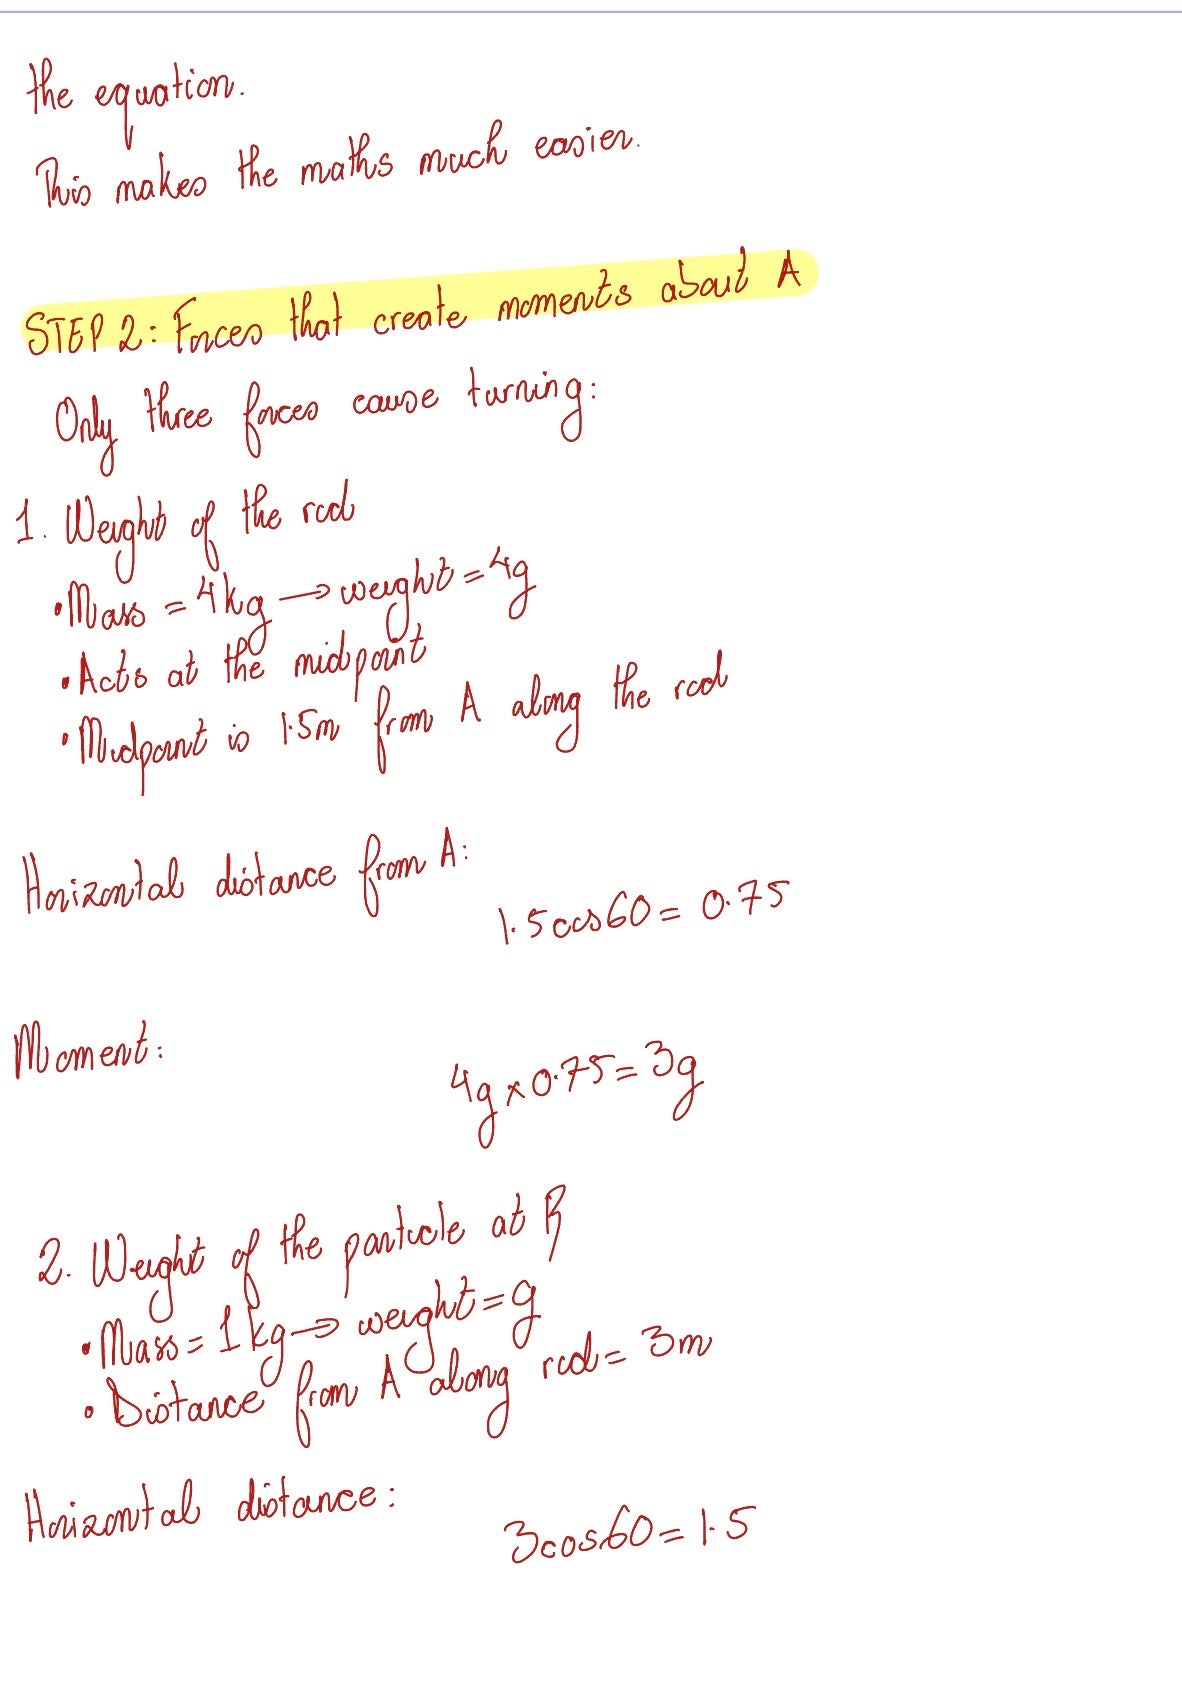 the equation.
This makes the maths much easier.
STEP 2: Forces that create moments about A
Only three forces cause turning:
1. Weight of the rod
• Mass = 4kg → weight = 4g
• Acts at the midpoint
• Midpoint is 1.5m from A along the rod
Horizontal distance from A:
1.5cos60 = 0.75
Moment:
4g × 0.75 = 3g
2. Weight of the particle at B
• Mass = 1kg → weight = g
• Distance from A along rod = 3m
Horizontal distance:
3cos60 = 1.5